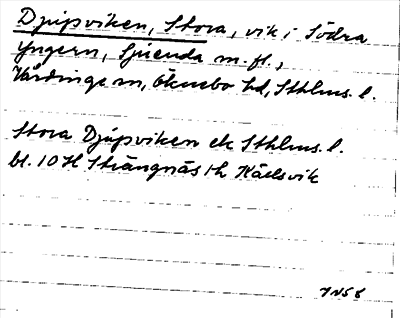 Djupviken, Stora, vik i Södra
Yngern, m. fl.,
Vårdinge sn, Öknebo hd, Sthlms. l.
Stora Djupviken ek Sthlms. l.
bl. 10 H Strängnäs th Kaelsvik